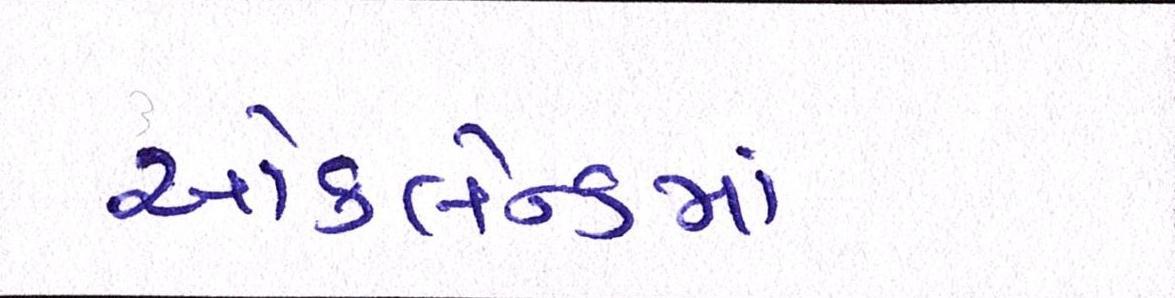 ઓકલેન્ડમાં